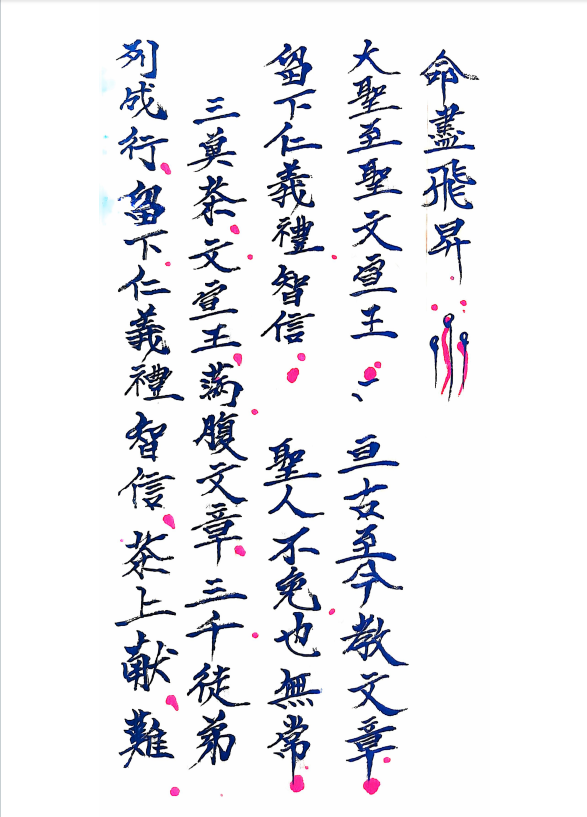 命盡飛昇
大聖至聖文宣王〻 亘古至今教文章
留下仁義禮智信 聖人不免也無常
三奠茶文宣王滿腹文章三千徒弟
列成行留下仁義禮智信茶上献難